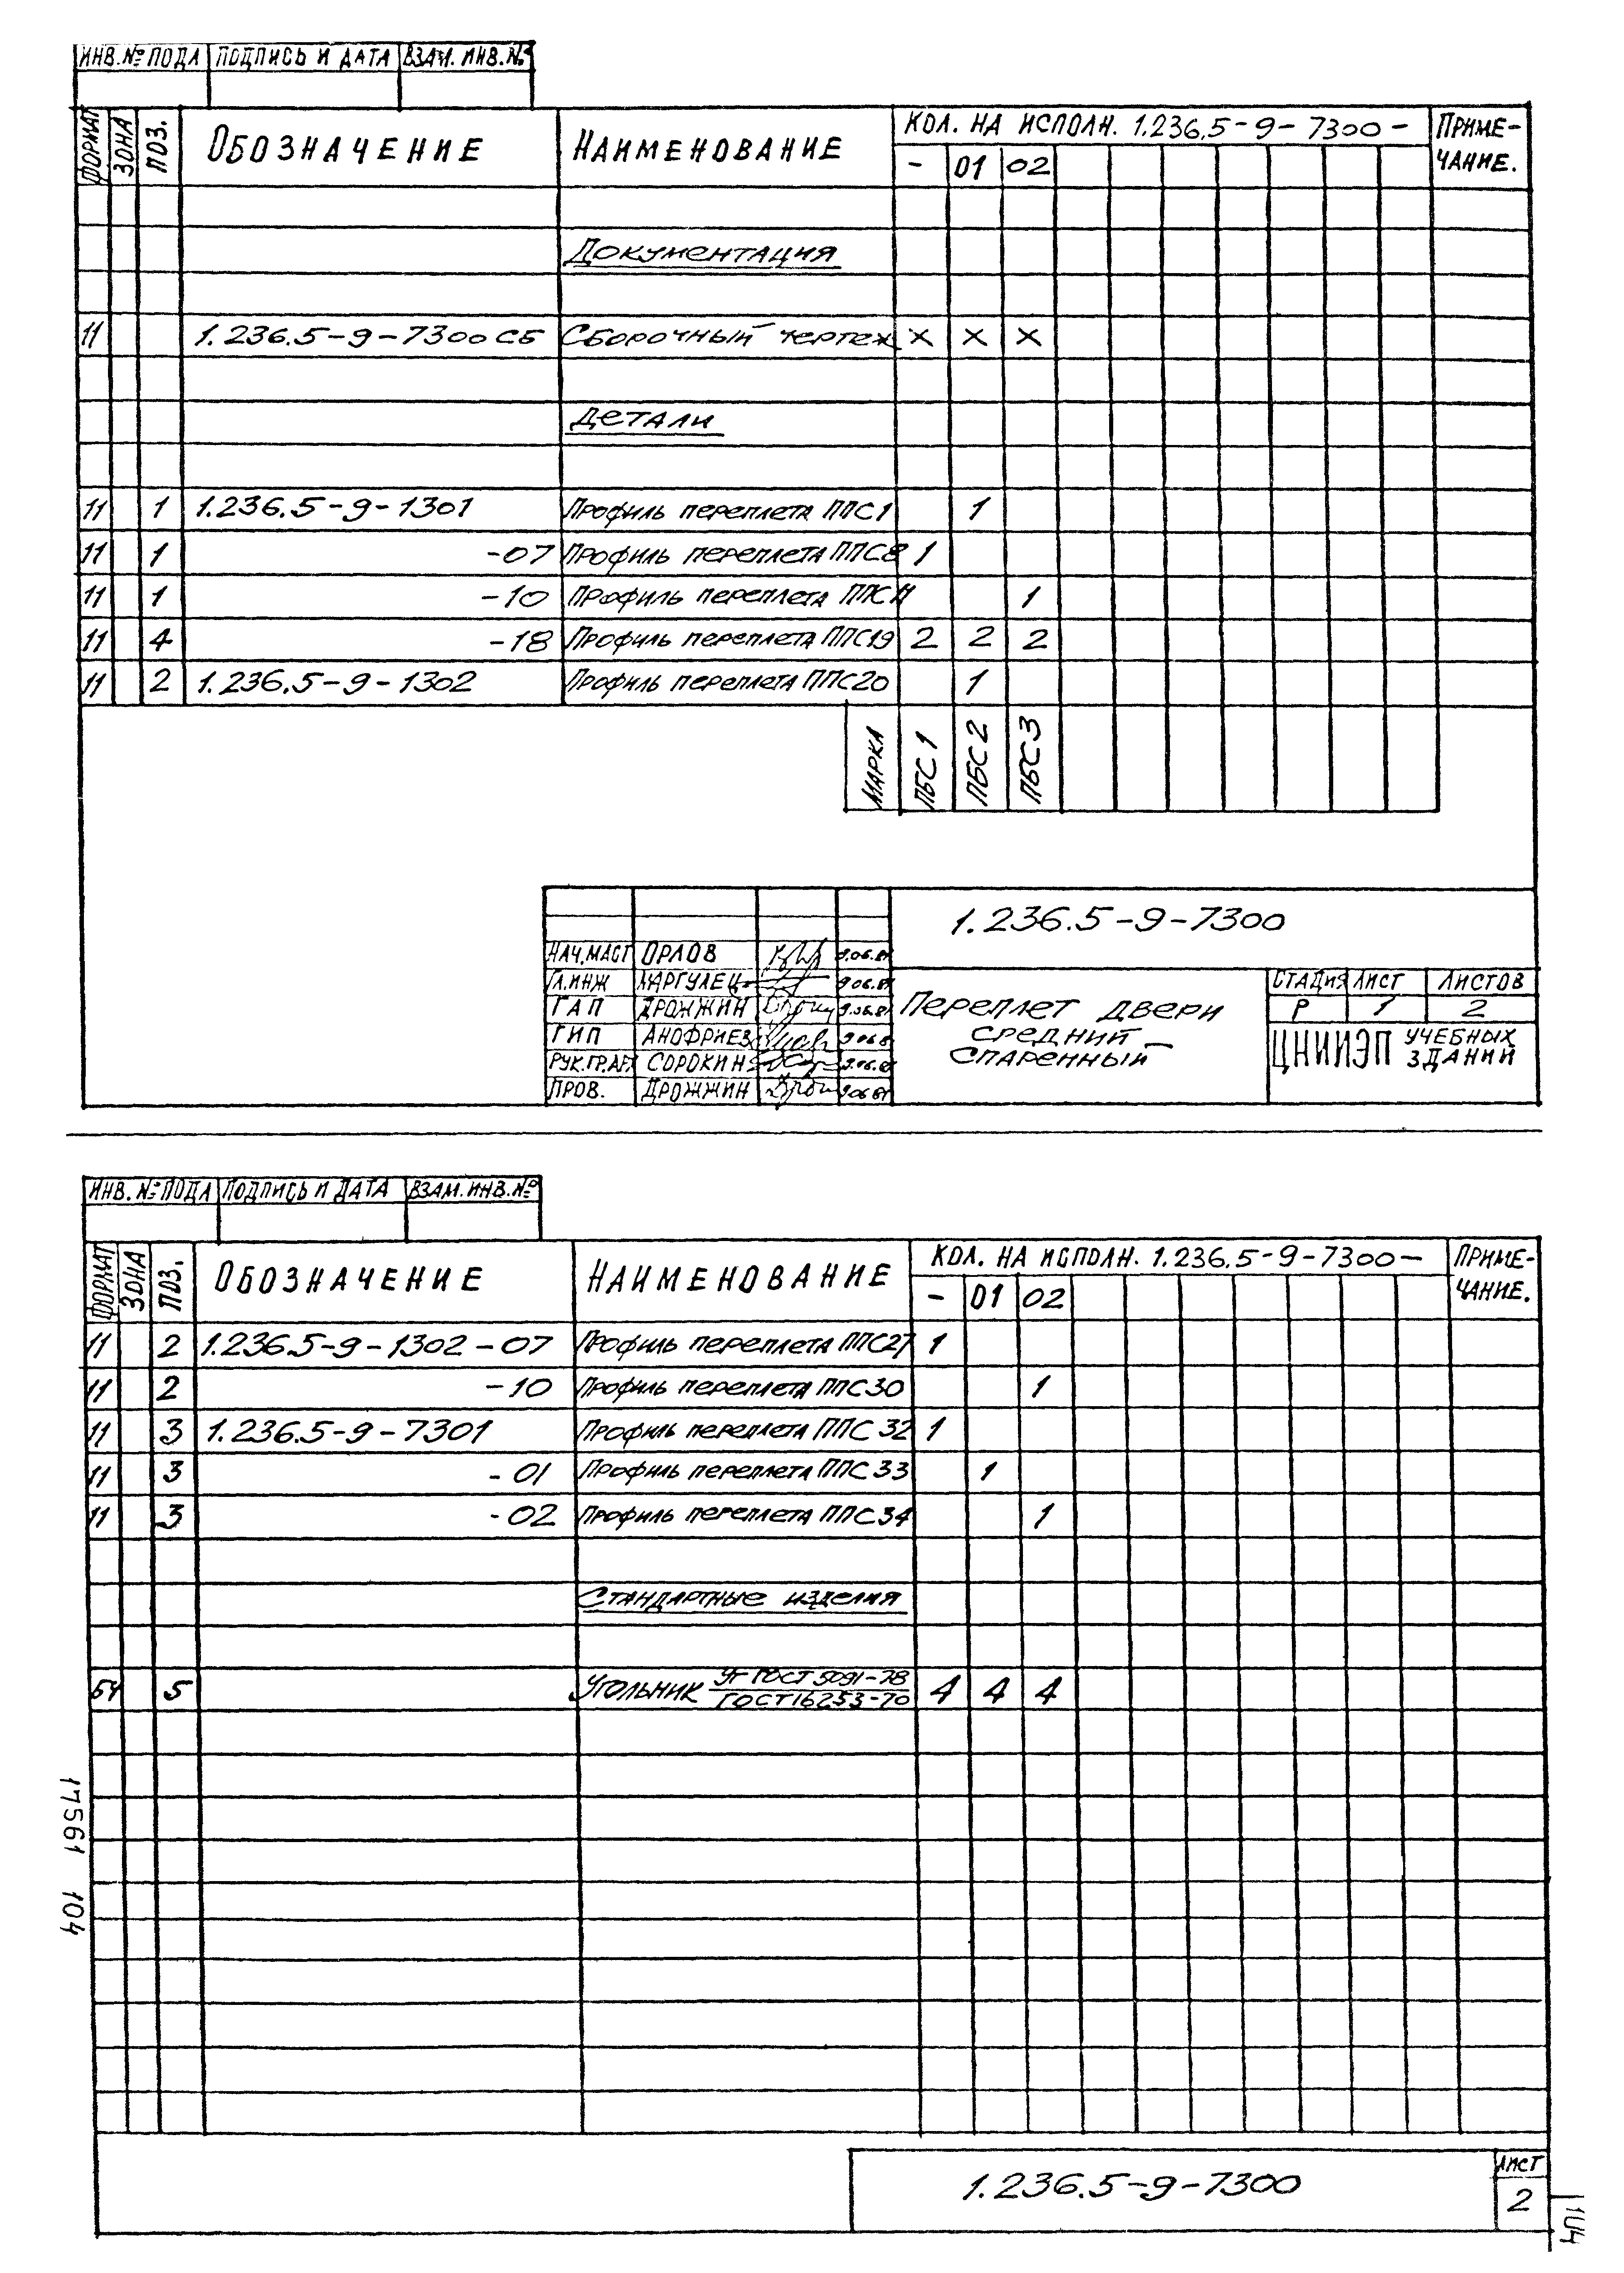 ИНВ. № ПОДЛ ПОДПИСЬ И ДАТА ВЗАМ. ИНВ. №
ФОРМАТ ЗОНА ПОЗ. ОБОЗНАЧЕНИЕ НАИМЕНОВАНИЕ КОЛ. НА ИСПОЛН. 1.236.5-9-7300- ПРИМЕ-
ЧАНИЕ.
- 01 02
Документация
11 1.236.5-9-7300 СБ Сборочный чертеж × × ×
Детали
11 1 1.236.5-9-1301 Профиль переплета ППС1 1
11 1 -07 Профиль переплета ППС8 1
11 1 -10 Профиль переплета ППС11 1
11 4 -18 Профиль переплета ППС19 2 2 2
11 2 1.236.5-9-1302 Профиль переплета ППС20 1
МАРКА ПБС1 ПБС2 ПБС3
1.236.5-9-7300
НАЧ.МАСТ ОРЛОВ 9.06.81
ГЛ.ИНЖ КАРГУЛЕЦ 9.06.81
ГАП ДРОЖЖИН 9.06.81
ГИП АНОФРИЕВ 9.06.8
РУК.ГР.АР. СОРОКИН 9.06.81
ПРОВ. ДРОЖЖИН 9.06.81
Переплет двери
средний
спаренный
СТАДИЯ ЛИСТ ЛИСТОВ
Р 1 2
ЦНИИЭП УЧЕБНЫХ
ЗДАНИЙ
ИНВ. № ПОДЛ ПОДПИСЬ И ДАТА ВЗАМ. ИНВ. №
ФОРМАТ ЗОНА ПОЗ. ОБОЗНАЧЕНИЕ НАИМЕНОВАНИЕ КОЛ. НА ИСПОЛН. 1.236.5-9-7300- ПРИМЕ-
ЧАНИЕ.
- 01 02
11 2 1.236.5-9-1302-07 Профиль переплета ППС27 1
11 2 -10 Профиль переплета ППС30 1
11 3 1.236.5-9-7301 Профиль переплета ППС 32 1
11 3 -01 Профиль переплета ППС 33 1
11 3 -02 Профиль переплета ППС 34 1
Стандартные изделия
БЧ 5 Угольник УГ ГОСТ 5091-78 4 4 4
ГОСТ 16253-70
17561 104
1.236.5-9-7300
ЛИСТ
2
104